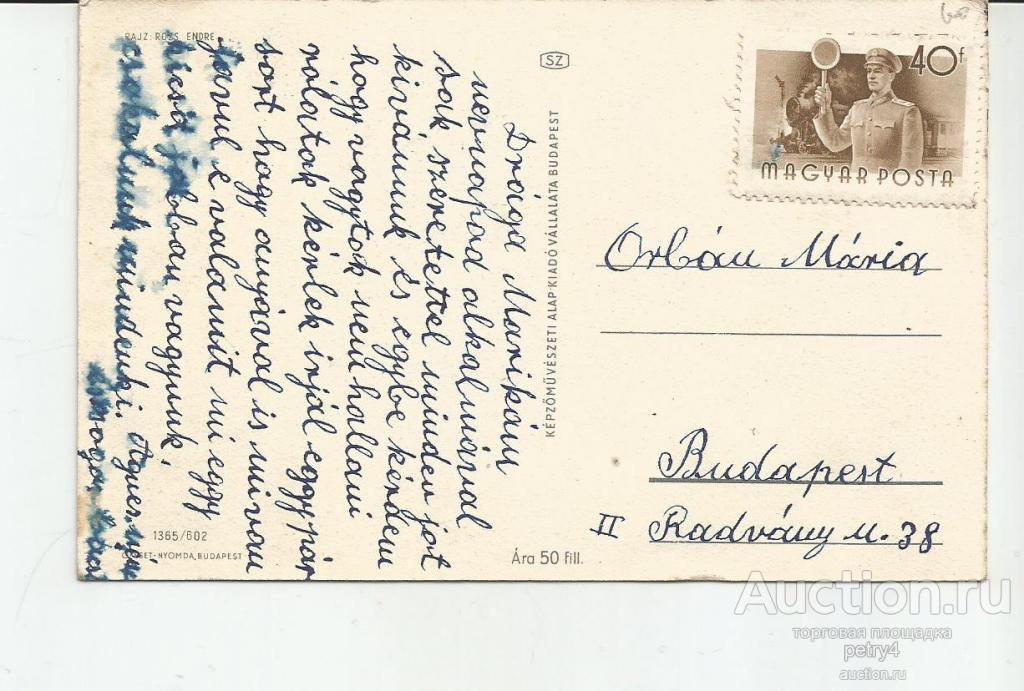 RAJZ: RÓZS ENDRE
Drága Marikám
nevnapod alkalmával
sok szeretettel minden jót
kivánunk és egybe kérdem
hogy vagytok nem hallani
rólatok kérlek irjál egy pár
sort hogy anyával is mi van
javul e valamit mi egy
kicsit jobban vagyunk,
csokolunk mindenki.
1365/602
OFSET-NYOMDA, BUDAPEST
SZ
KÉPZŐMŰVÉSZETI ALAP KIADÓVÁLLALATA BUDAPEST
Ára 50 fill.
40f
MAGYAR POSTA
Orbán Mária
Budapest
II Radvány u. 38
Auction.ru
торговая площадка
petry4
auction.ru